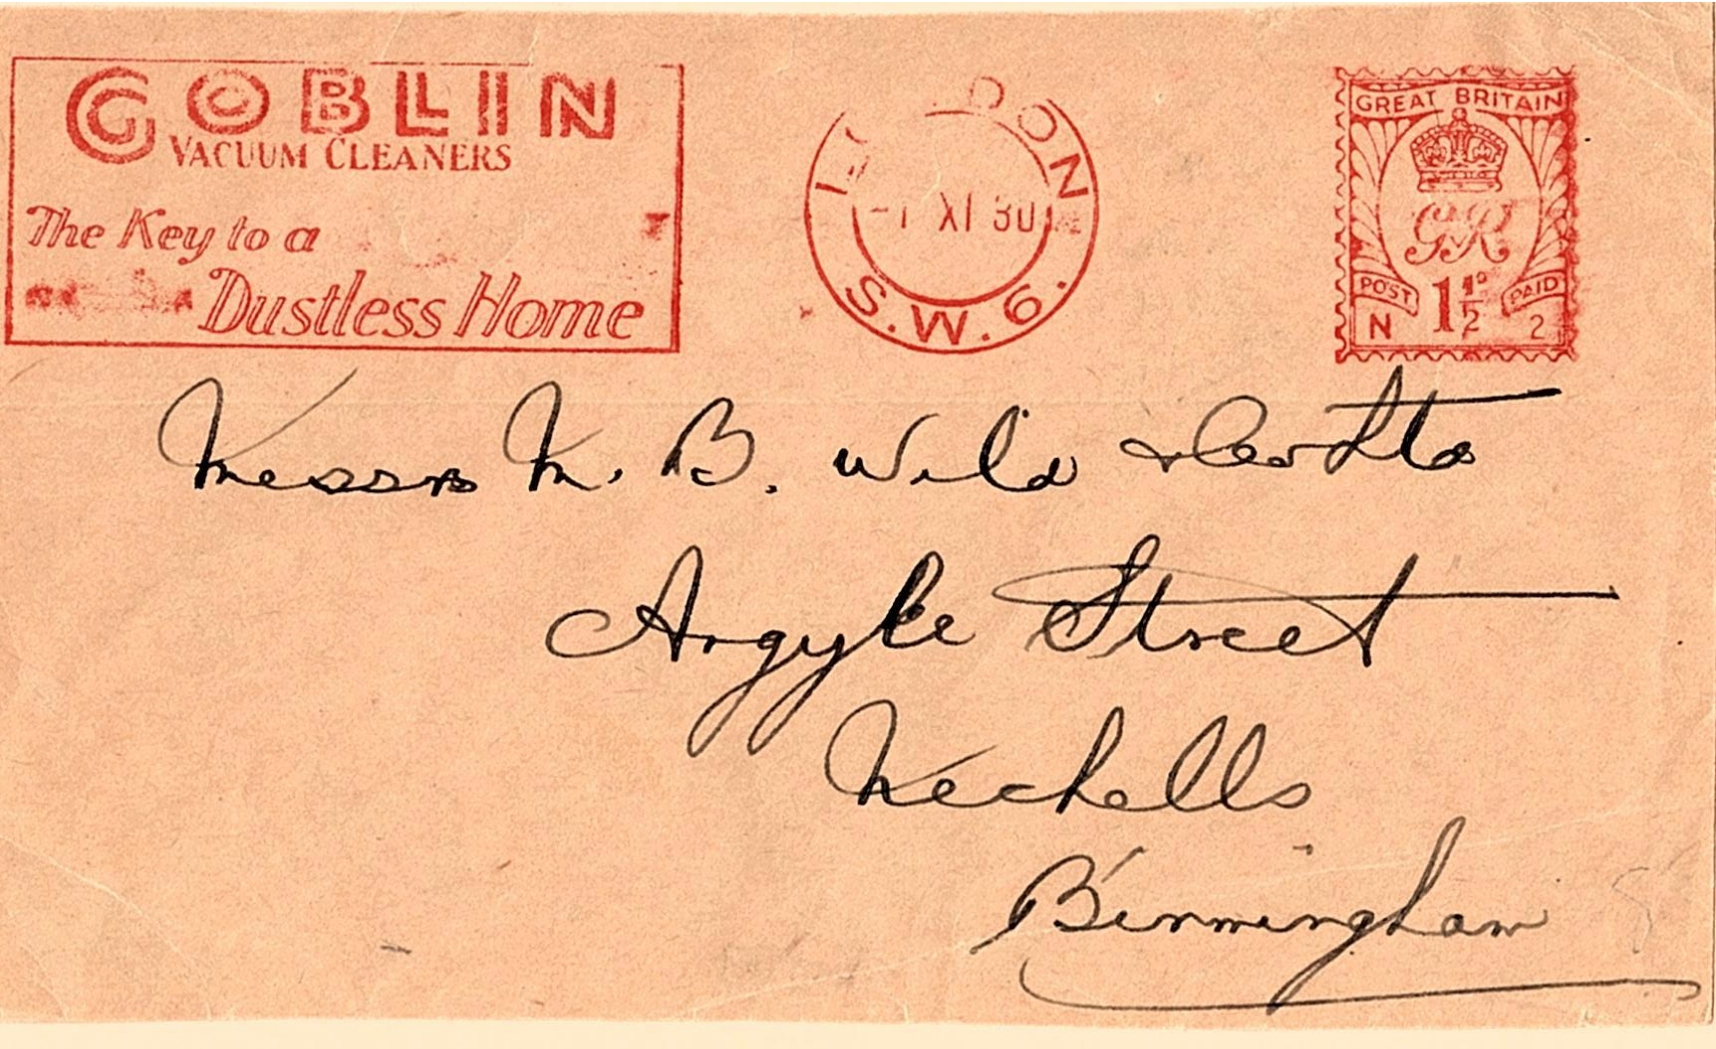 GOBLIN
VACUUM CLEANERS
The Key to a
Dustless Home
LONDON
-1 XI 30
S.W.6.
GREAT BRITAIN
GR
POST 1½ᴰ PAID
N 2
Messrs M. B. Wild & Co Ltd
Argyle Street
Nechells
Birmingham